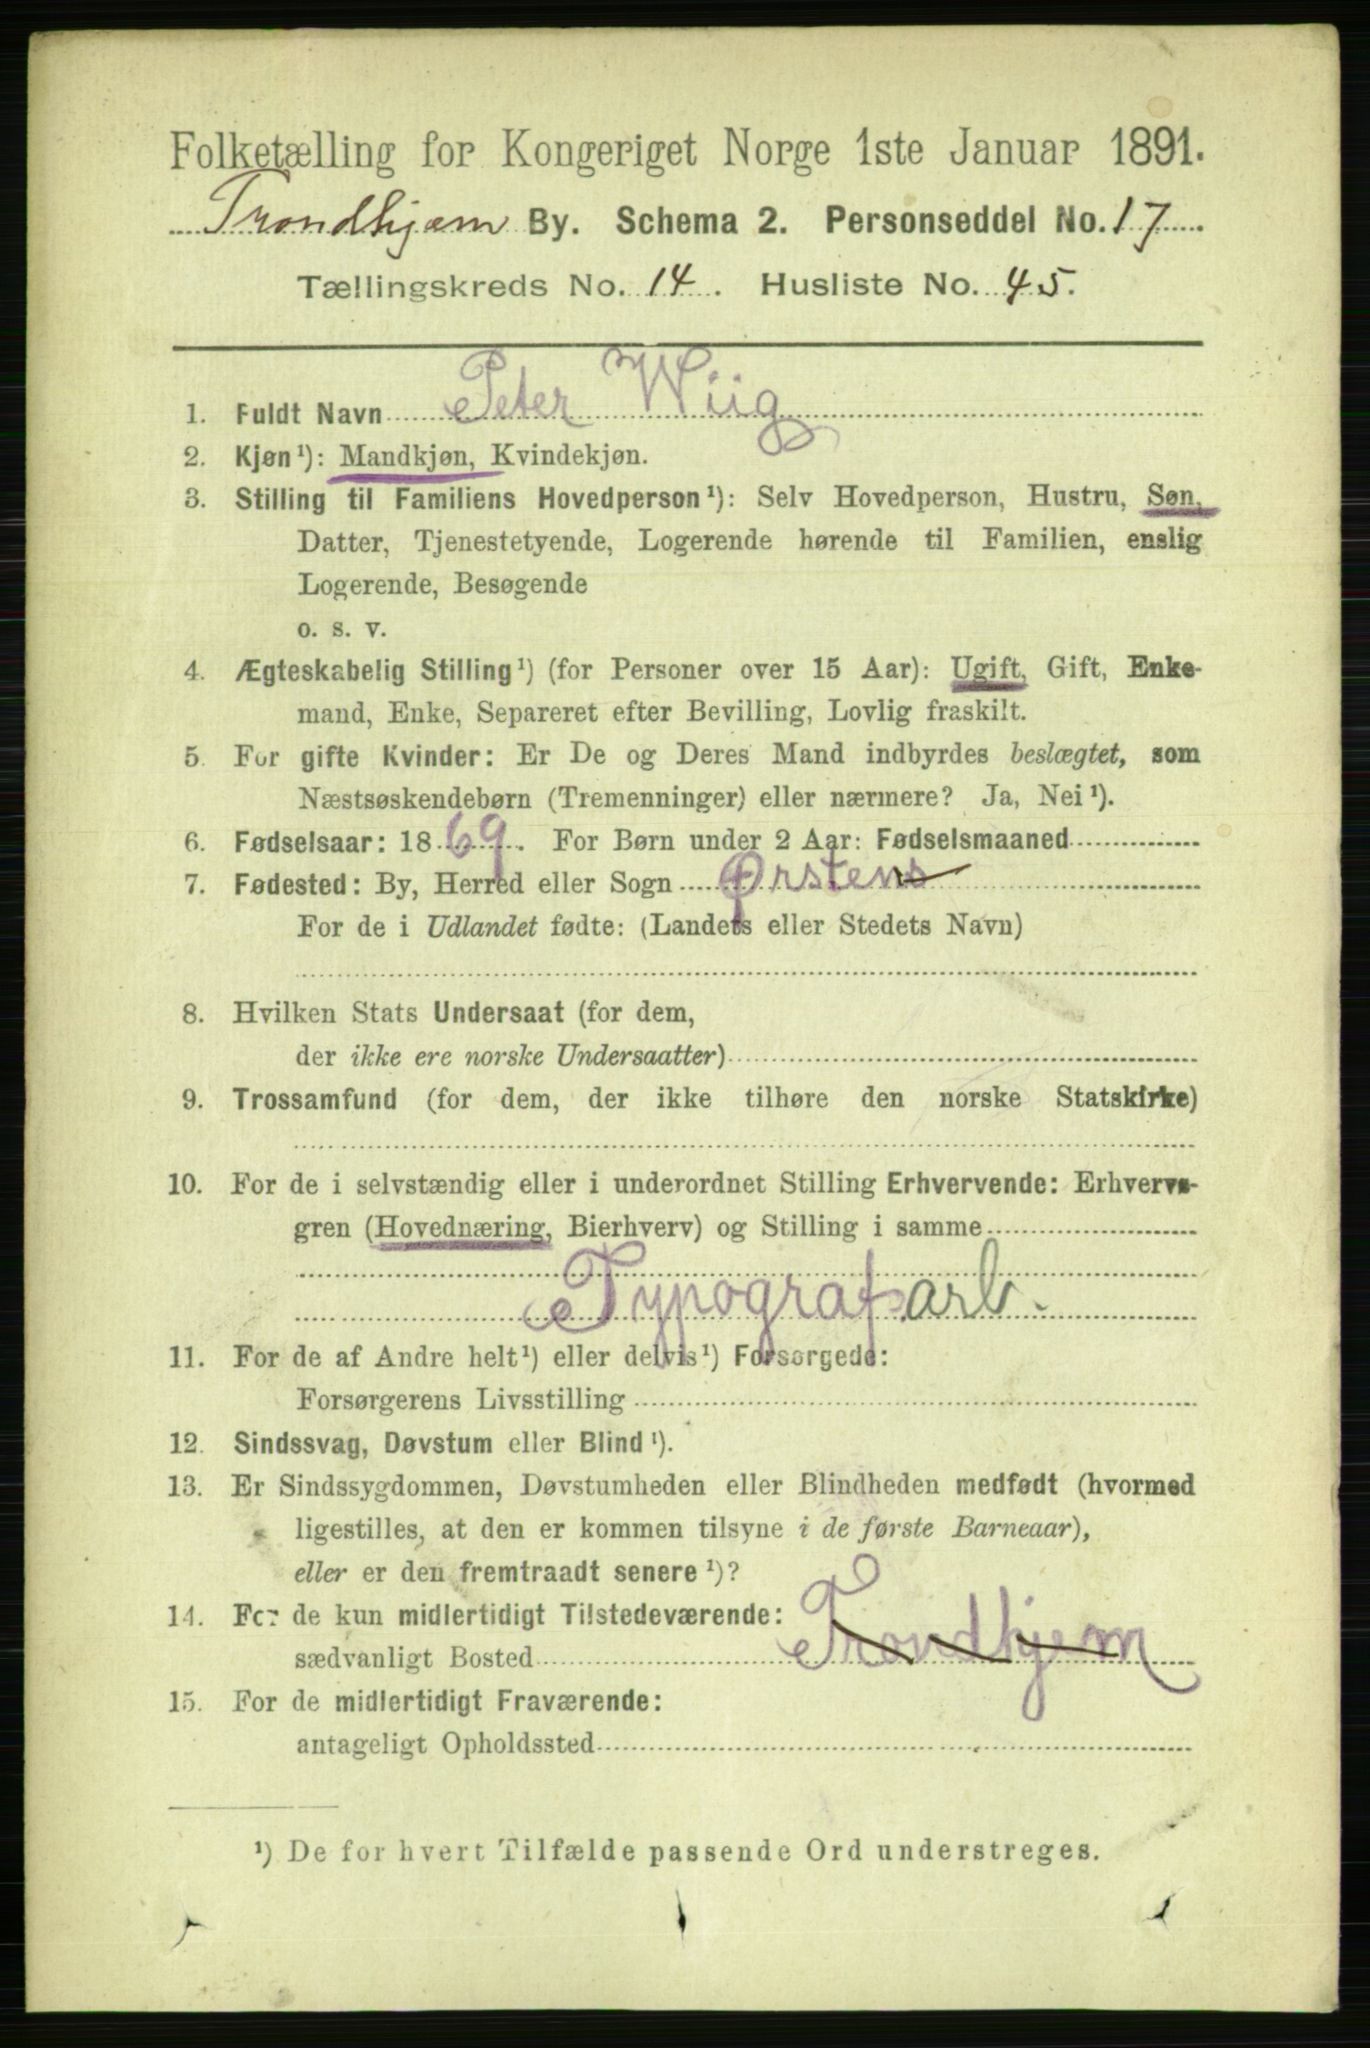 Folketælling for Kongeriget Norge 1ste Januar 1891.
Trondhjem By. Schema 2. Personseddel No. 17
Tællingskreds No. 14. Husliste No. 45.
1. Fuldt Navn Peter Wiig
2. Kjøn¹): Mandkjøn, Kvindekjøn.
3. Stilling til Familiens Hovedperson¹): Selv Hovedperson, Hustru, Søn,
Datter, Tjenestetyende, Logerende hørende til Familien, enslig
Logerende, Besøgende
o. s. v.
4. Ægteskabelig Stilling¹) (for Personer over 15 Aar): Ugift, Gift, Enke-
mand, Enke, Separeret efter Bevilling, Lovlig fraskilt.
5. For gifte Kvinder: Er De og Deres Mand indbyrdes beslægtet, som
Næstsøskendebørn (Tremenninger) eller nærmere? Ja, Nei¹).
6. Fødselsaar: 1869. For Børn under 2 Aar: Fødselsmaaned
7. Fødested: By, Herred eller Sogn Ørstens
For de i Udlandet fødte: (Landets eller Stedets Navn)
8. Hvilken Stats Undersaat (for dem,
der ikke ere norske Undersaatter)
9. Trossamfund (for dem, der ikke tilhøre den norske Statskirke)
10. For de i selvstændig eller i underordnet Stilling Erhvervende: Erhvervs-
gren (Hovednæring, Bierhverv) og Stilling i samme
Typograf arb.
11. For de af Andre helt¹) eller delvis¹) Forsørgede:
Forsørgerens Livsstilling
12. Sindssvag, Døvstum eller Blind¹).
13. Er Sindssygdommen, Døvstumheden eller Blindheden medfødt (hvormed
ligestilles, at den er kommen tilsyne i de første Barneaar),
eller er den fremtraadt senere¹)?
14. For de kun midlertidigt Tilstedeværende:
sædvanligt Bosted Trondhjem
15. For de midlertidigt Fraværende:
antageligt Opholdssted
¹) De for hvert Tilfælde passende Ord understreges.